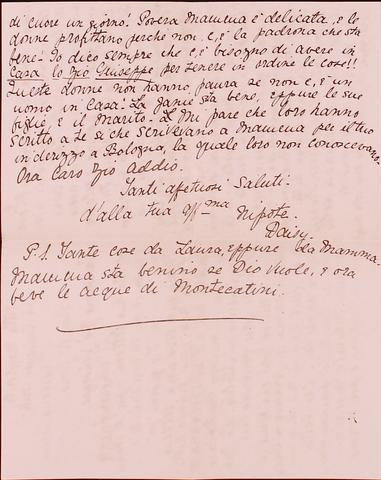 di cuore un giorno! Povera Mamma è delicata, e le
donne profittano perchè non c,è la padrona che sta
bene! Io dico sempre che c,è bisogno di avere in
Casa lo Zio Giuseppe per tenere in ordine le cose!!
Queste donne non hanno, paura se non c,è un
uomo in Casa! La Ganie sta bene, eppure le sue
figlie, e il Marito. E Mi pare che loro hanno
scritto a te si che scrivevano a Mamma per il tuo
inderizzo a Bologna, la quale loro non conoscevano.
Ora Caro Zio Addio.
Tanti afetuosi Saluti.
d'alla tua Aff.ma Nipote.
Daisy.
P.S. Tante cose da Laura, eppure da Mamma.
Mamma sta benino se Dio Vuole, e ora
beve le acque di Montecatini.